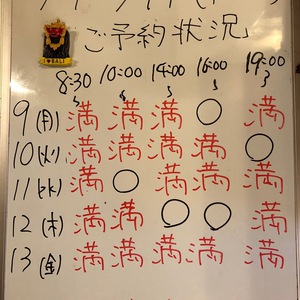 ご予約状況
I ♥ BALI
8:30 10:00 14:00 16:00 19:00
9(月) 満 満 満 ○ 満
10(火) 満 満 満 満 ○
11(水) 満 ○ 満 満 満
12(木) 満 満 ○ ○ 満
13(金) 満 満 満 満 満